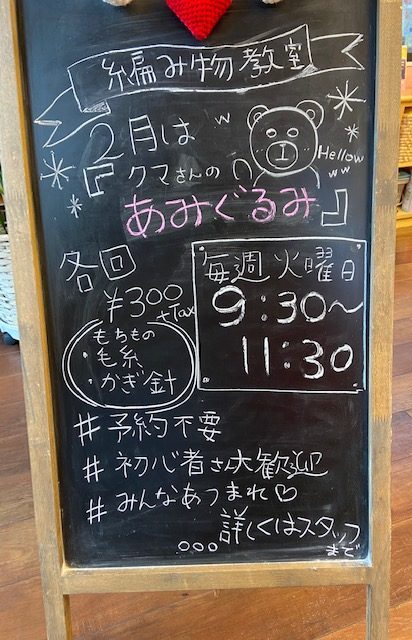 編み物教室
2月は w
『クマさんの
Hellow
ww
あみぐるみ』
各回
¥300
+Tax
もちもの
・毛糸
・かぎ針
毎週火曜日
9:30〜
11:30
#予約不要
#初心者さん大歓迎
#みんなあつまれ♡
。。。詳しくはスタッフ
まで